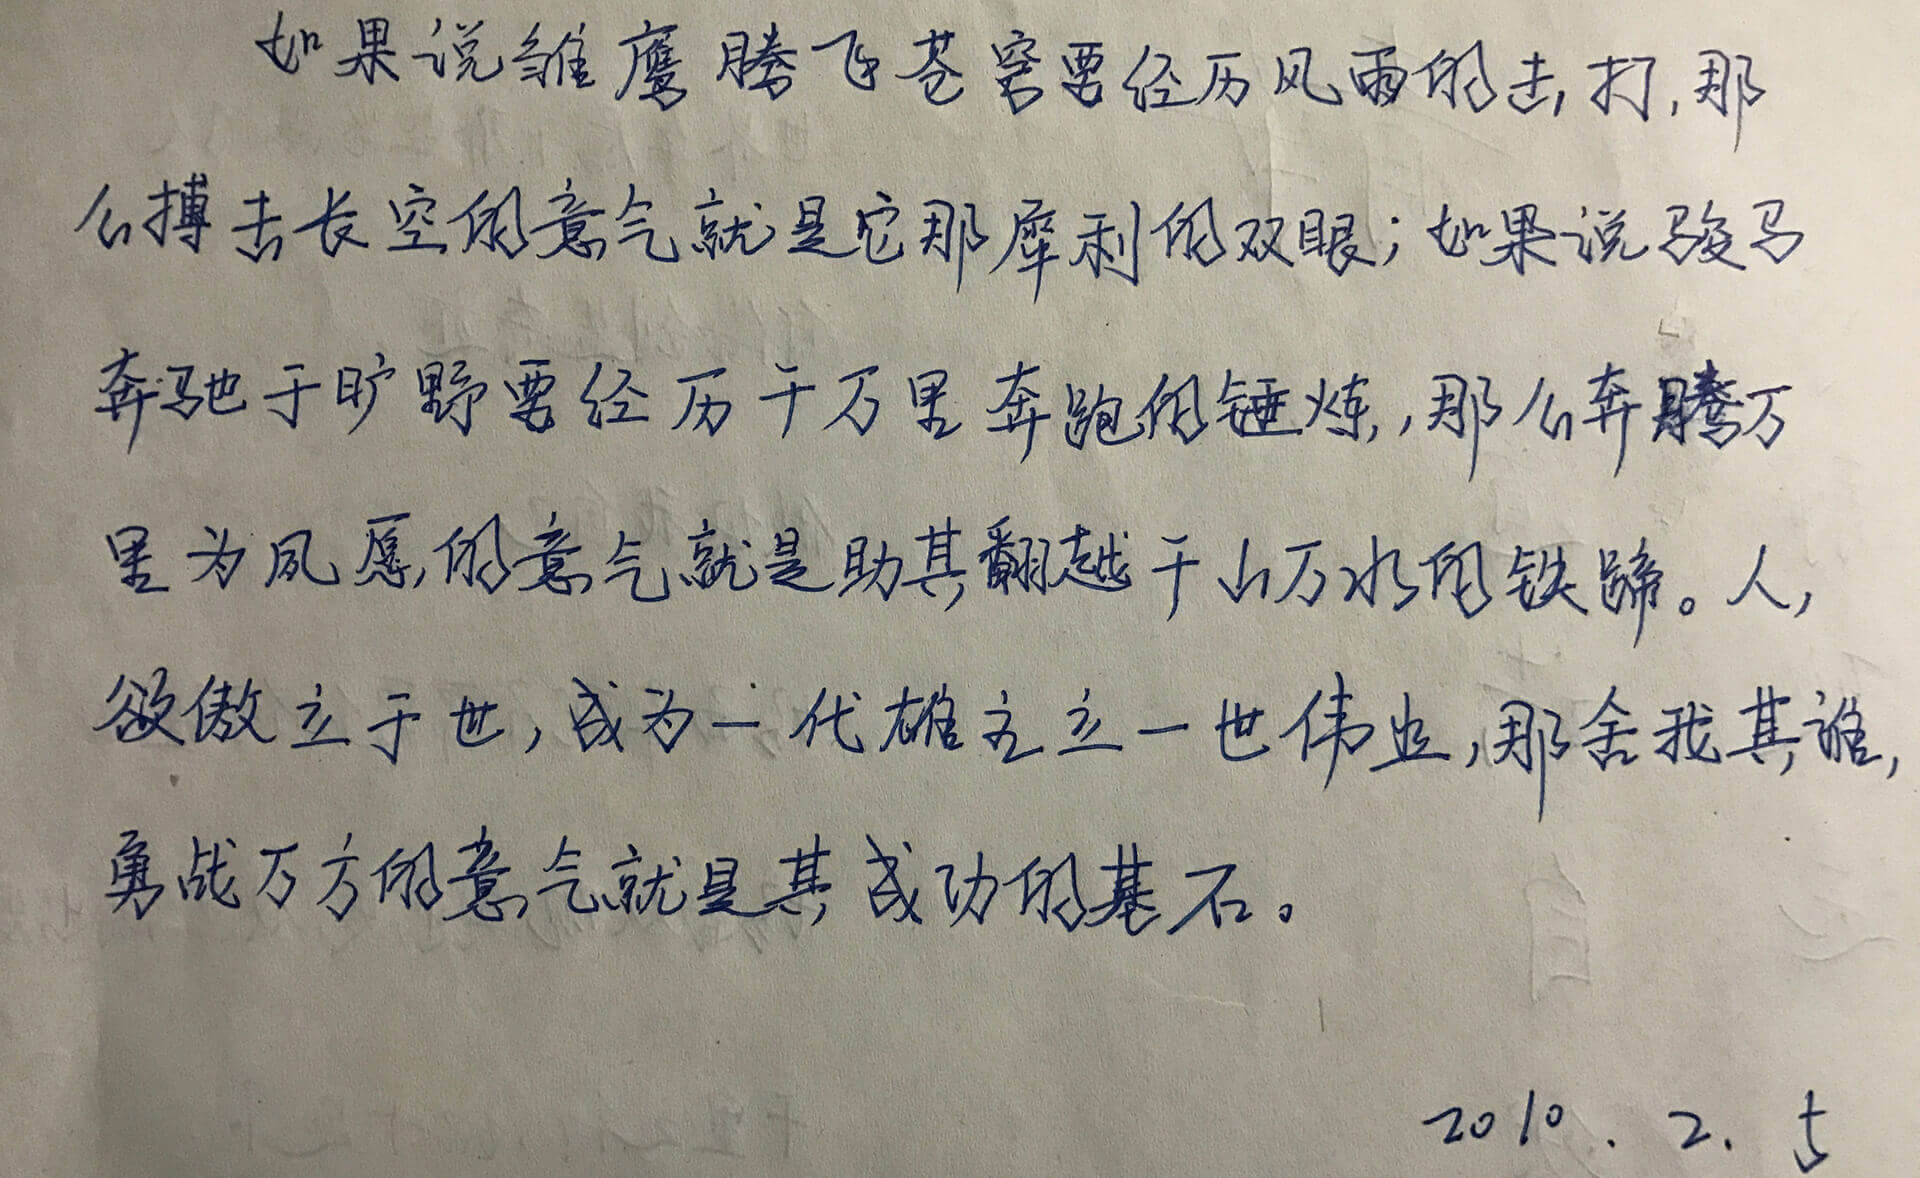 如果说雏鹰腾飞苍穹要经历风雨的击打,那
么搏击长空的意气就是它那犀利的双眼;如果说骏马
奔驰于旷野要经历千万里奔跑的锤炼,那么奔腾万
里为夙愿的意气就是助其翻越千山万水的铁蹄。人,
欲傲立于世,成为一代雄主立一世伟业,那舍我其谁,
勇战万方的意气就是其成功的基石。
2010.2.5